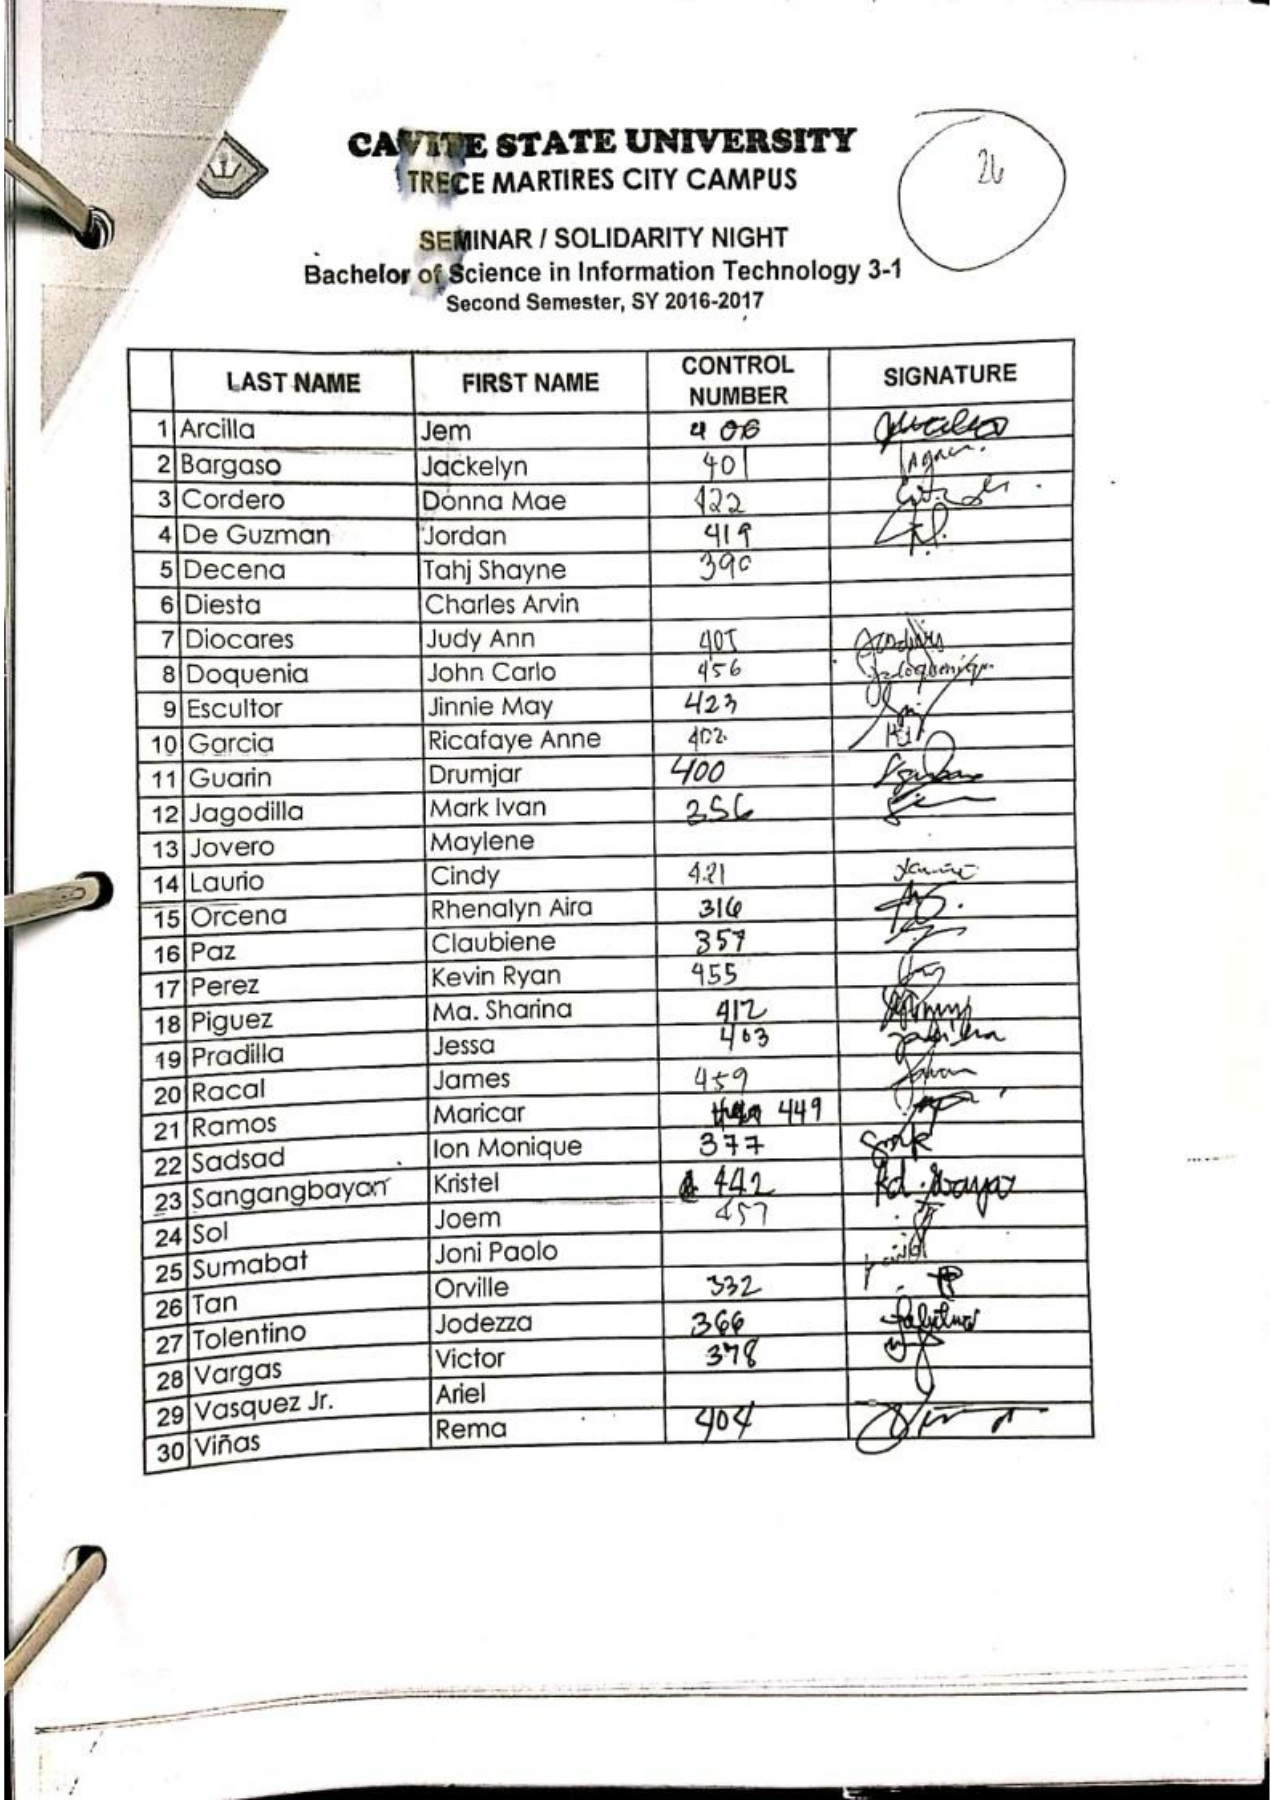 CAVITE STATE UNIVERSITY
TRECE MARTIRES CITY CAMPUS
26
SEMINAR / SOLIDARITY NIGHT
Bachelor of Science in Information Technology 3-1
Second Semester, SY 2016-2017
LAST NAME FIRST NAME CONTROL NUMBER SIGNATURE
1 Arcilla Jem 406
2 Bargaso Jackelyn 401
3 Cordero Donna Mae 422
4 De Guzman Jordan 419
5 Decena Tahj Shayne 390
6 Diesta Charles Arvin
7 Diocares Judy Ann 405
8 Doquenia John Carlo 456
9 Escultor Jinnie May 423
10 Garcia Ricafaye Anne 402
11 Guarin Drumjar 400
12 Jagodilla Mark Ivan 356
13 Jovero Maylene
14 Laurio Cindy 421
15 Orcena Rhenalyn Aira 316
16 Paz Claubiene 357
17 Perez Kevin Ryan 455
18 Piguez Ma. Sharina 412
19 Pradilla Jessa 403
20 Racal James 459
21 Ramos Maricar 449
22 Sadsad Ion Monique 377
23 Sangangbayan Kristel 442
24 Sol Joem 457
25 Sumabat Joni Paolo
26 Tan Orville 332
27 Tolentino Jodezza 366
28 Vargas Victor 378
29 Vasquez Jr. Ariel
30 Viñas Rema 404